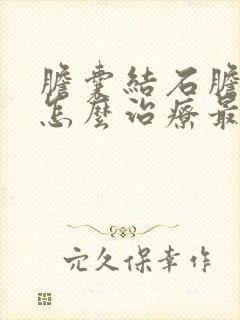 膽囊結石膽
怎麼治療最
元久保幸作